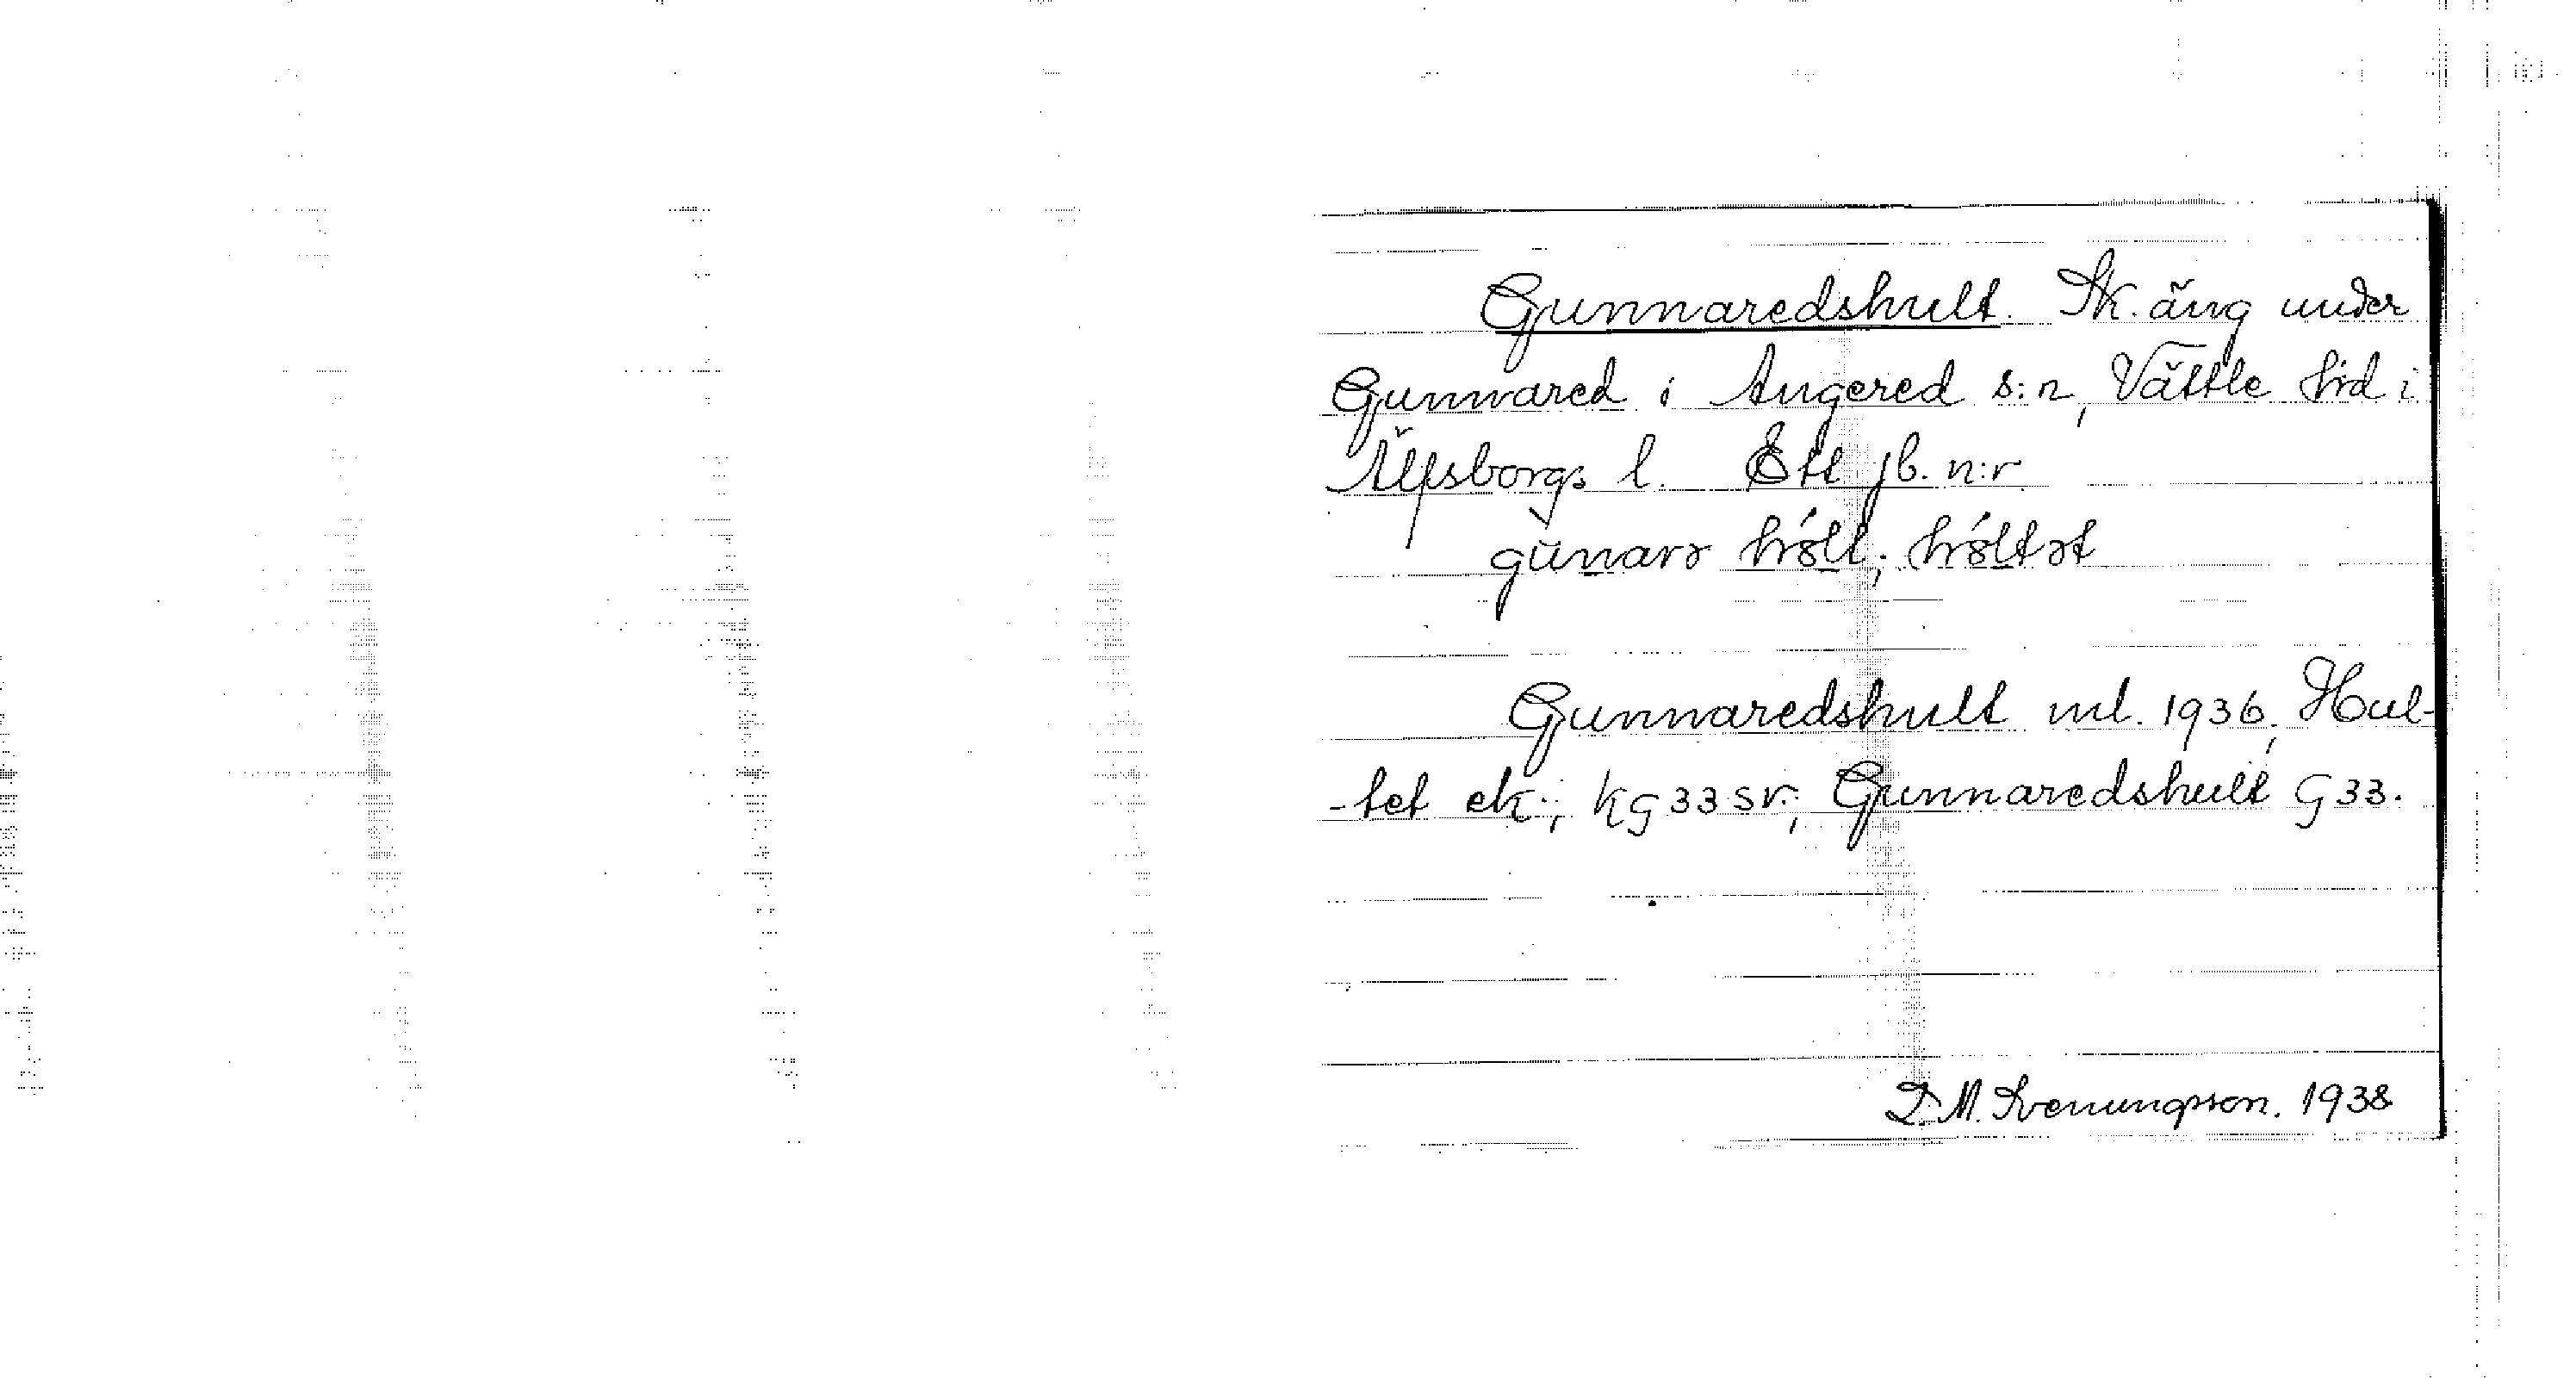 Gunnaredshult. Sk. äng under
Gunnared i Angered s:n, Vättle hrd i
Älfsborgs l. Ett jb. n:r
Gunnaredshult ml. 1936, Hul-
-tet ek.; KG 33 sv.; Gunnaredshult G 33.
M. Svenungsson. 1938